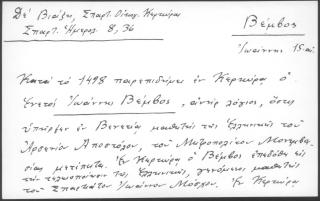 Δε Βιάζη, Σπαρτ. Οἰκογ. Κερκύρα
Σπαρτ. Ἡμερολ. 8, 36
Βέμβος
Ἰωάννης 15 αἰ.
Κατά τό 1498 παρεπιδήμει ἐν Κερκύρᾳ ὁ
Ἑνετός Ἰωάννης Βέμβος, ἀνήρ λόγιος, ὅστις
ὑπῆρξεν ἐν Βενετίᾳ μαθητής τῆς Ἑλληνικῆς τοῦ
Ἀρσενίου Ἀποστόλου, τοῦ Μητροπολίτου Μονεμβα
σίας μετέπειτα. Ἐν Κερκύρᾳ ὁ Βέμβος ἐπεδόθη εἰς
τήν τελειοποίησιν τῆς Ἑλληνικῆς, γενόμενος μαθητής
τοῦ Σπαρτιάτου Ἰωάννου Μόσχου. Ἐν Κερκύρᾳ